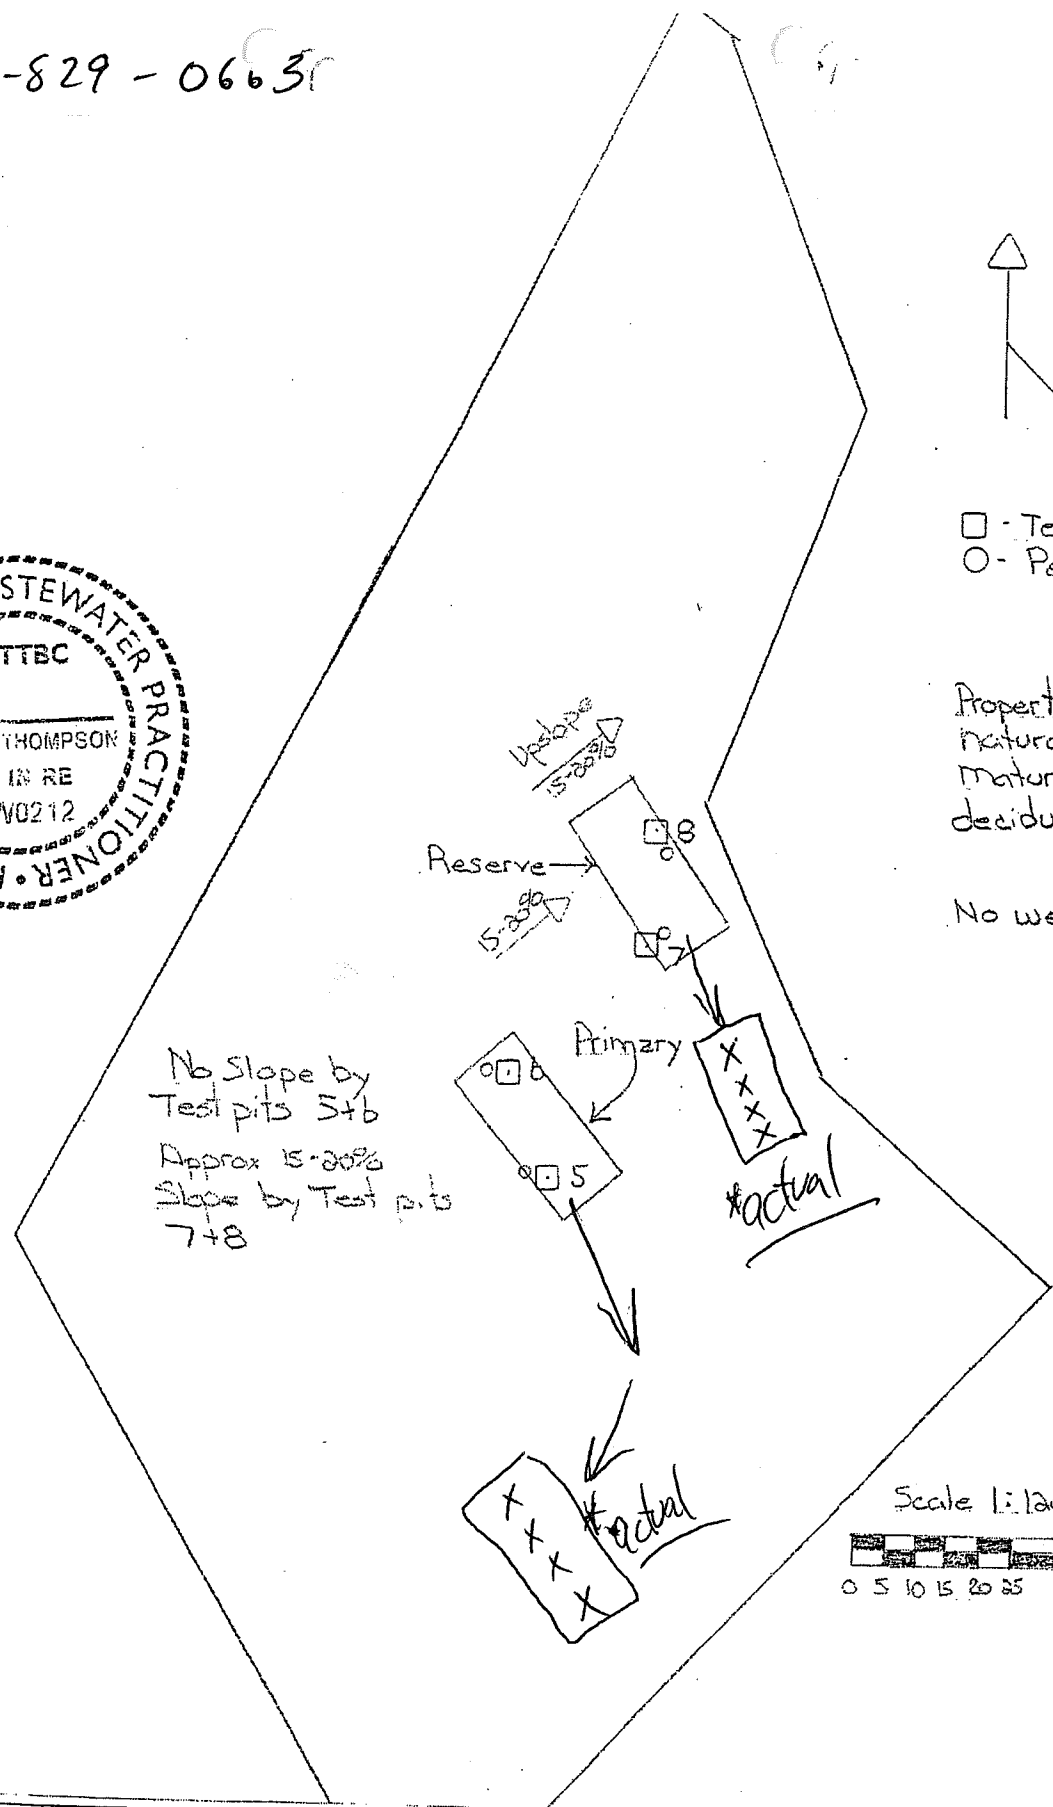 -829 - 0663
STEWATER PRACTITIONER
TTBC
THOMPSON
IN RE
0212
□ - Te
O - Pe
Propert
natura
matur
decidu
No we
Upslope
15-20%
Reserve
8
15-20%
7
Primary
No Slope by
Test pits 5+6
Approx 15-20%
Slope by Test pits
7+8
6
5
X
X
X
X
*actual
X
X
X
X
*actual
Scale 1:12
0 5 10 15 20 25